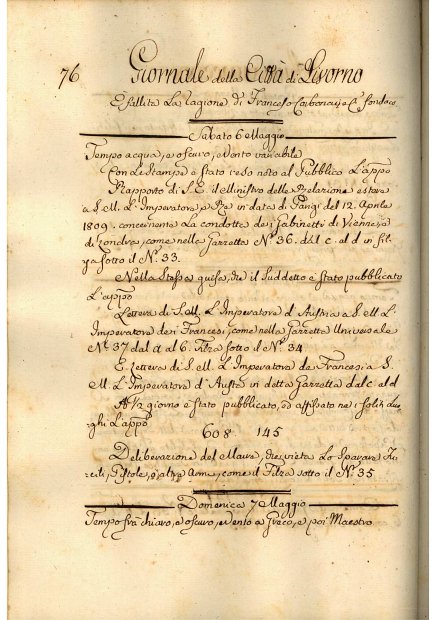 76 Giornale della Città di Livorno
È fallita La Ragione di Francesco Carbonai, e C. fondaco
Sabato 6 Maggio
Tempo acqua, e oscuro, e vento variabile
Con Le Stampe è stato reso noto al Pubblico L'appo
Rapporto di S. E. il Ministro delle Relazione estere
a S. M. L'Imperatore, e Re in data di Parigi del 12. Aprile
1809. concernente La condotta dei Gabinetti di Vienna e
di Londra, come nella Gazzetta N.° 36. dal c. al d in fil-
za sotto il N.° 33.
Nella Stessa guisa, che il Suddetto è stato pubblicato
L'appo
Lettera di S. M. L'Imperatore d'Austria a S. M. L'
Imperatore de i Francesi, come nella Gazzetta Universale
N.° 37 dal a al 6 Filza sotto il N.° 34
E Lettera di S. M. L'Imperatore de Francesi a S.
M. L'Imperatore d'Austria in detta Gazzetta dal c. al d
A 1/2 giorno è stato pubblicato, ed affissato ne i soliti Luo-
ghi L'appo
608 145
Deliberazione del Maire, che vieta Lo Sparare Fu-
cili, Pistole, o altre Armi, come il Filza sotto il N.° 35
Domenica 7 Maggio
Tempo frà chiaro, e oscuro, e vento a Greco, e poi Maestro